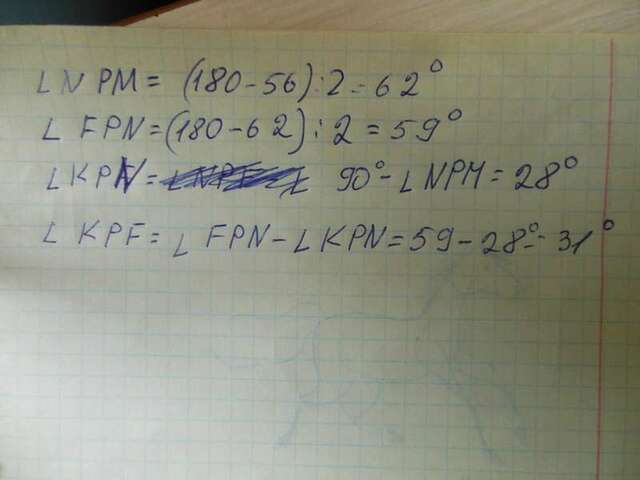 ∠NPM = (180-56):2=62°
∠FPN=(180-62):2=59°
∠KPN= 90°-∠NPM=28°
∠KPF=∠FPN-∠KPN=59-28°=31°